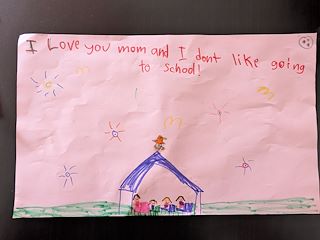 I Love you mom and I dont like going
to school!